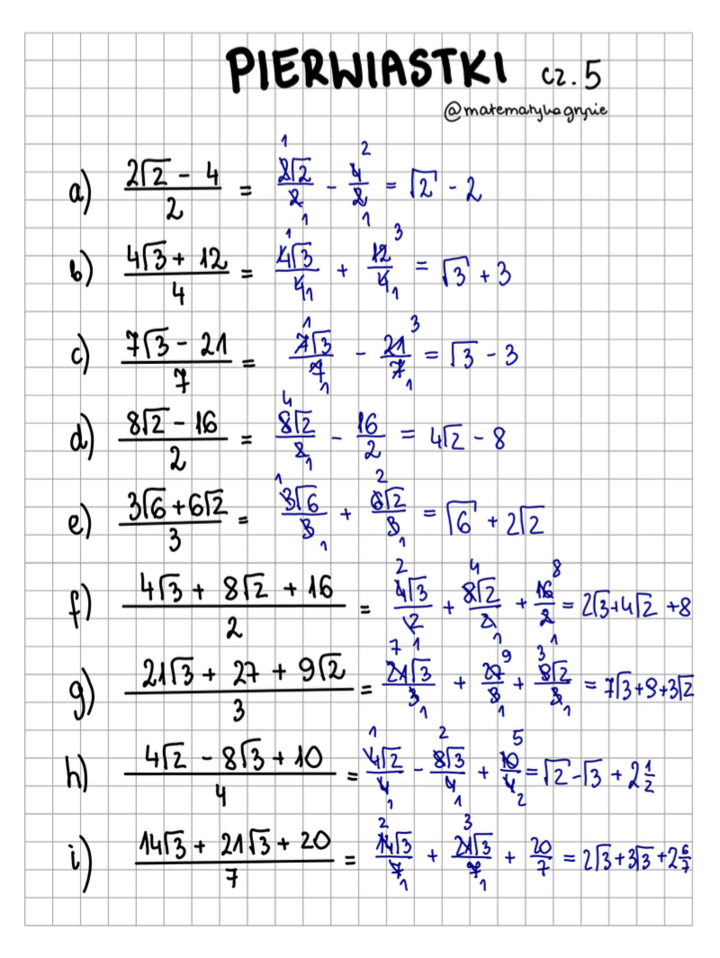 PIERWIASTKI cz. 5
@matematykagryzie
a) (2√2 - 4)/2 = 2√2/2 - 4/2 = √2 - 2
b) (4√3 + 12)/4 = 4√3/4 + 12/4 = √3 + 3
c) (7√3 - 21)/7 = 7√3/7 - 21/7 = √3 - 3
d) (8√2 - 16)/2 = 8√2/2 - 16/2 = 4√2 - 8
e) (3√6 + 6√2)/3 = 3√6/3 + 6√2/3 = √6 + 2√2
f) (4√3 + 8√2 + 16)/2 = 4√3/2 + 8√2/2 + 16/2 = 2√3 + 4√2 + 8
g) (21√3 + 27 + 9√2)/3 = 21√3/3 + 27/3 + 9√2/3 = 7√3 + 9 + 3√2
h) (4√2 - 8√3 + 10)/4 = 4√2/4 - 8√3/4 + 10/4 = √2 - √3 + 2 1/2
i) (14√3 + 21√3 + 20)/7 = 14√3/7 + 21√3/7 + 20/7 = 2√3 + 3√3 + 2 6/7